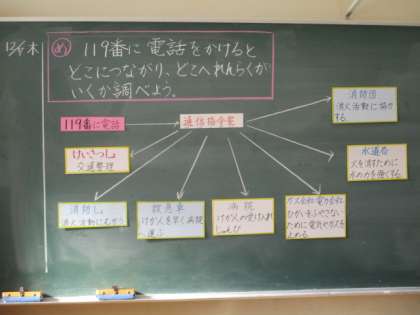 め 119番に電話をかけると
どこにつながり、どこへれんらくが
いくか調べよう。
119番に電話
通信指令室
消防団
消火活動に協力
する。
けいさつしょ
交通整理
水道局
火を消すために
水の力を強くする。
消防しょ
消火活動にむかう
救急車
けが人を早く病院
へ運ぶ
病院
けが人の受け入れ
じゅんび
ガス会社・電力会社
ひがいをふやさない
ために電気やガスを
止める。